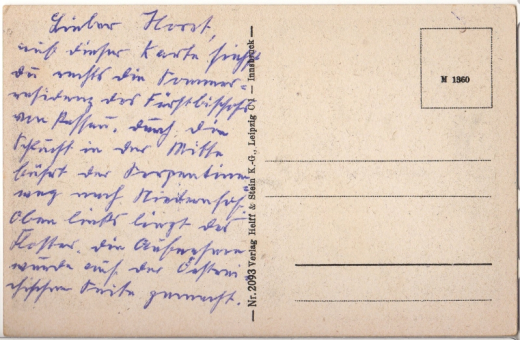 Lieber Horst,
auf dieser Karte siehst
du rechts die Sommer-
residenz des Fürstbischofs
von Passau. Durch die
Schlucht in der Mitte
führt der Serpentinen
weg nach
Oben links liegt das
Kloster. Die Aufnahme
wurde auf der Östrei
chischen Seite gemacht.
— Nr. 2093 Verlag Helff & Stein K.-G., Leipzig C 1 — Innsbruck —
M 1360